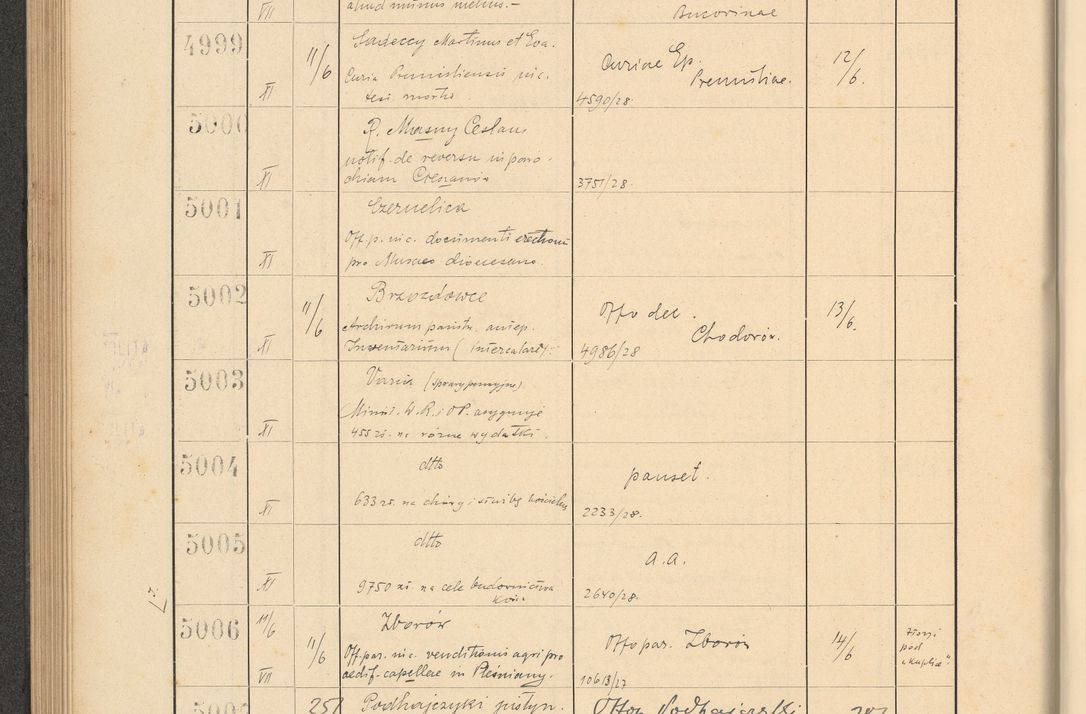 VII
aliud munus melius.-
Bucovinae
4999
11/6
XI
Sadeccy Martinus et Eva.
Curia Premisliensis nic.
test. mortis.
Curiae Ep.
Premisliae.
4590/28.
12/6.
5000
XI
R. Masny Ceslaus
notif. de reversu in paro-
chiam Cieszanów
3751/28.
5001
XI
Czernelica
Off. p. nic. documenti erectionis
pro Museo dioecesano.
5002
11/6
XI
Brzozdowce
Archivum państw. aniep.
Inventarium (intercalare):
Offo dec.
Chodorów.
4986/28
13/6.
5003
XI
Varia (sprawy pensyjne).
Minis. W.R. i OP. asygnuje
455 zł. na różne wydatki.
5004
XI
dtto
633 zł. na chóry i służbę kościelną
pauset.
2233/28.
5005
XI
dtto
9750 zł. na cele budownictwa
kośc.
a.a.
2640/28.
5006
11/6
VII
11/6
Zborów
Off. par. nic. venditionis agri pro
aedif. capellae in Pleśniany.
Offo par. Zborów
10613/27
14/6
złożyć
pod
"kaplica".
25/
Podhajczyki justyn.
Offo Podhajczyki